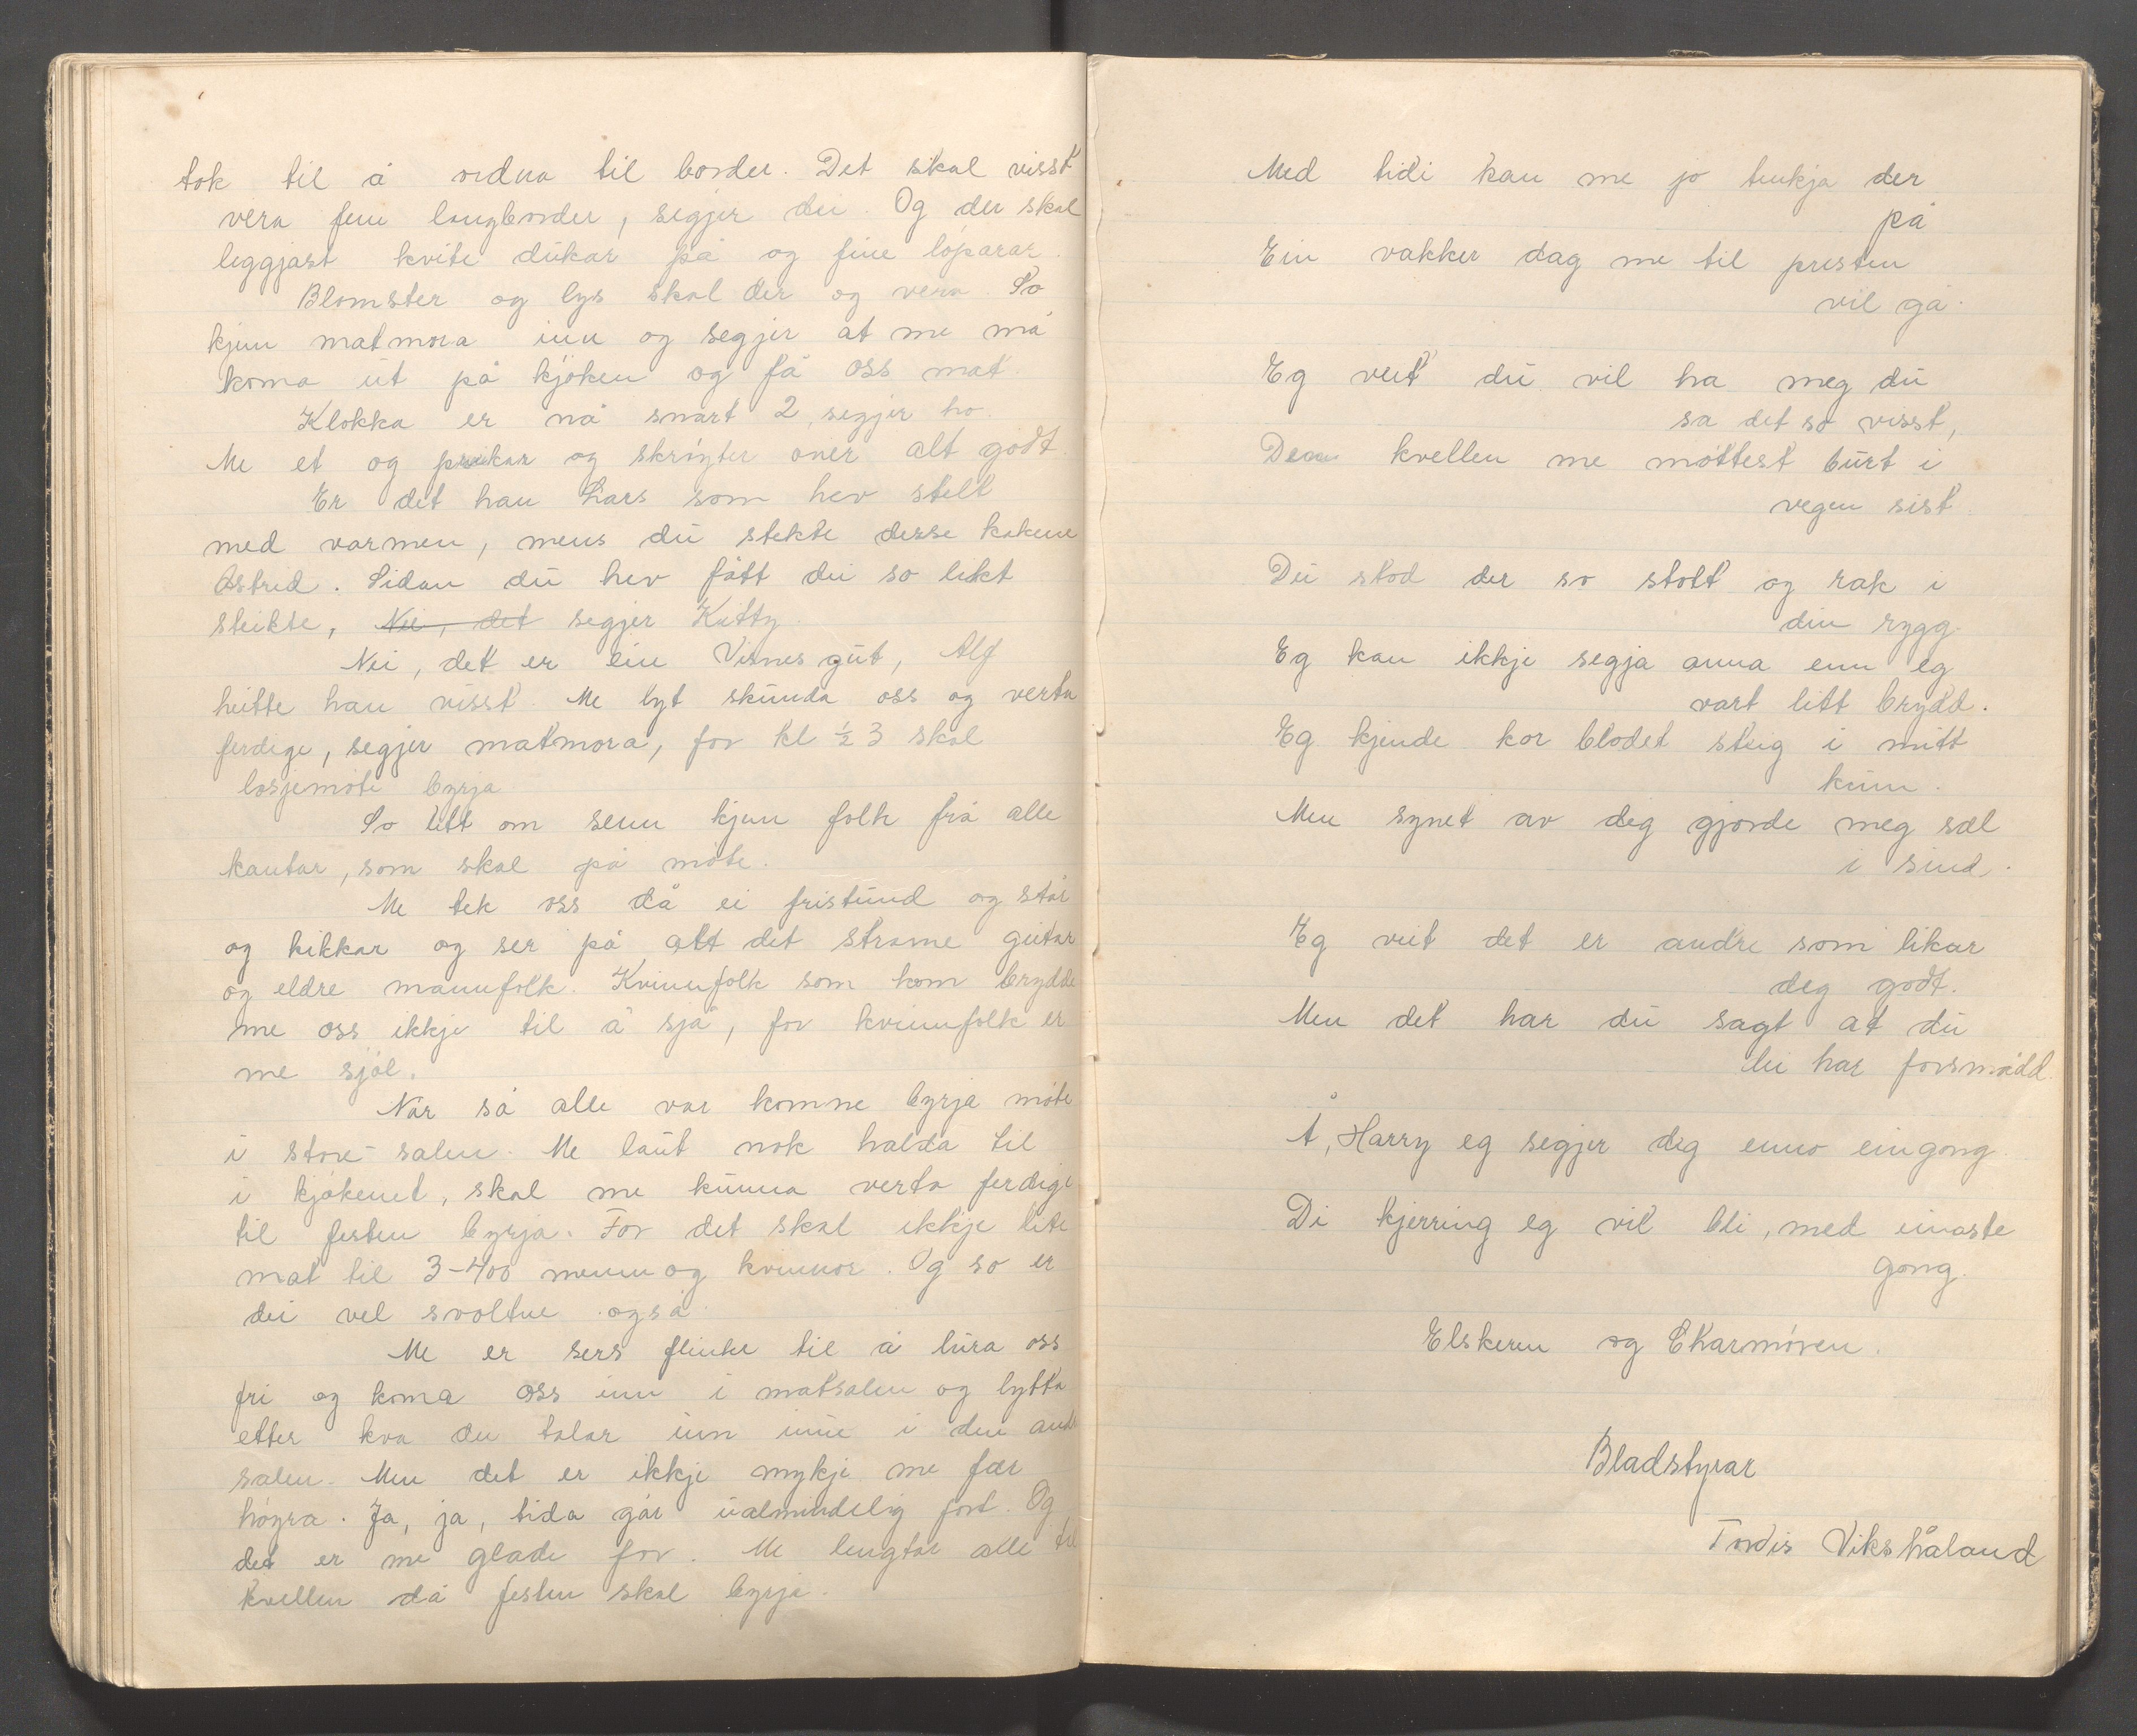 tok til å ordna til bordet. Det skal visst
vera fem langborder, segjer dei. Og der skal
leggjast kvite dukar på og fine löparar.
Blomster og lys skal der og vera. So
kjem matmora inn og segjer at me må
koma ut på kjöken og få oss mat.
Klokka er nå snart 2, segjer ho.
Me et og prikar og skröyter over alt godt.
Er det han Lars som hev stelt
med varmen, mens du stekte desse kakene
Astrid. Sidan du hev fått dei so lekt
steikte, Nei, det segjer Kitty.
Nei, det er ein Visnes gut, Alf
heitte han visst. Me lyt skunda oss og verta
ferdige, segjer matmora, for kl ½ 3 skal
losjemöte byrja
So litt om senn kjem folk frå alle
kantar, som skal på möte.
Me tek oss då ei fristund og står
og kikkar og ser på alt det strame gutar
og eldre mannfolk. Kvinnfolk som kom brydde
me oss ikkje til å sjå, for kvinnfolk er
me sjöl.
Når så alle var komne byrja möte
i store-salen. Me laut nok halda til
i kjökenet, skal me kunna verta ferdige
til festen byrja. For det skal ikkje lite
mat til 3-400 menn og kvinnor. Og so er
dei vel svoltne også.
Me er sers flinke til å lura oss
fri og koma oss inn i matsalen og lytta
etter kva dei talar um inne i den andre
salen. Men det er ikkje mykje me fær
höyra. Ja, ja, tida går ualmindelig fort. Og
det er me glade for. Me lengtar alle til
kvellen då festen skal byrja.
Med tidi kan me jo tenkja der
på
Ein vakker dag me til presten
vil gå.
Eg veit du vil ha meg du
sa det so visst,
Den kvellen me möttest burt i
vegen sist.
Du stod der so stolt og rak i
din rygg.
Eg kan ikkje segja anna enn eg
vart litt brydd.
Eg kjende kor blodet steig i mitt
kinn.
Men synet av deg gjorde meg sæl
i sind.
Eg veit det er andre som likar
deg godt.
Men det har du sagt at du
dei har forsmådd.
Å, Harry eg segjer deg enno eingong
Di kjerring eg vil bli, med einaste
gong.
Elskeren og Charmören.
Bladstyrar
Tordis Vikshåland